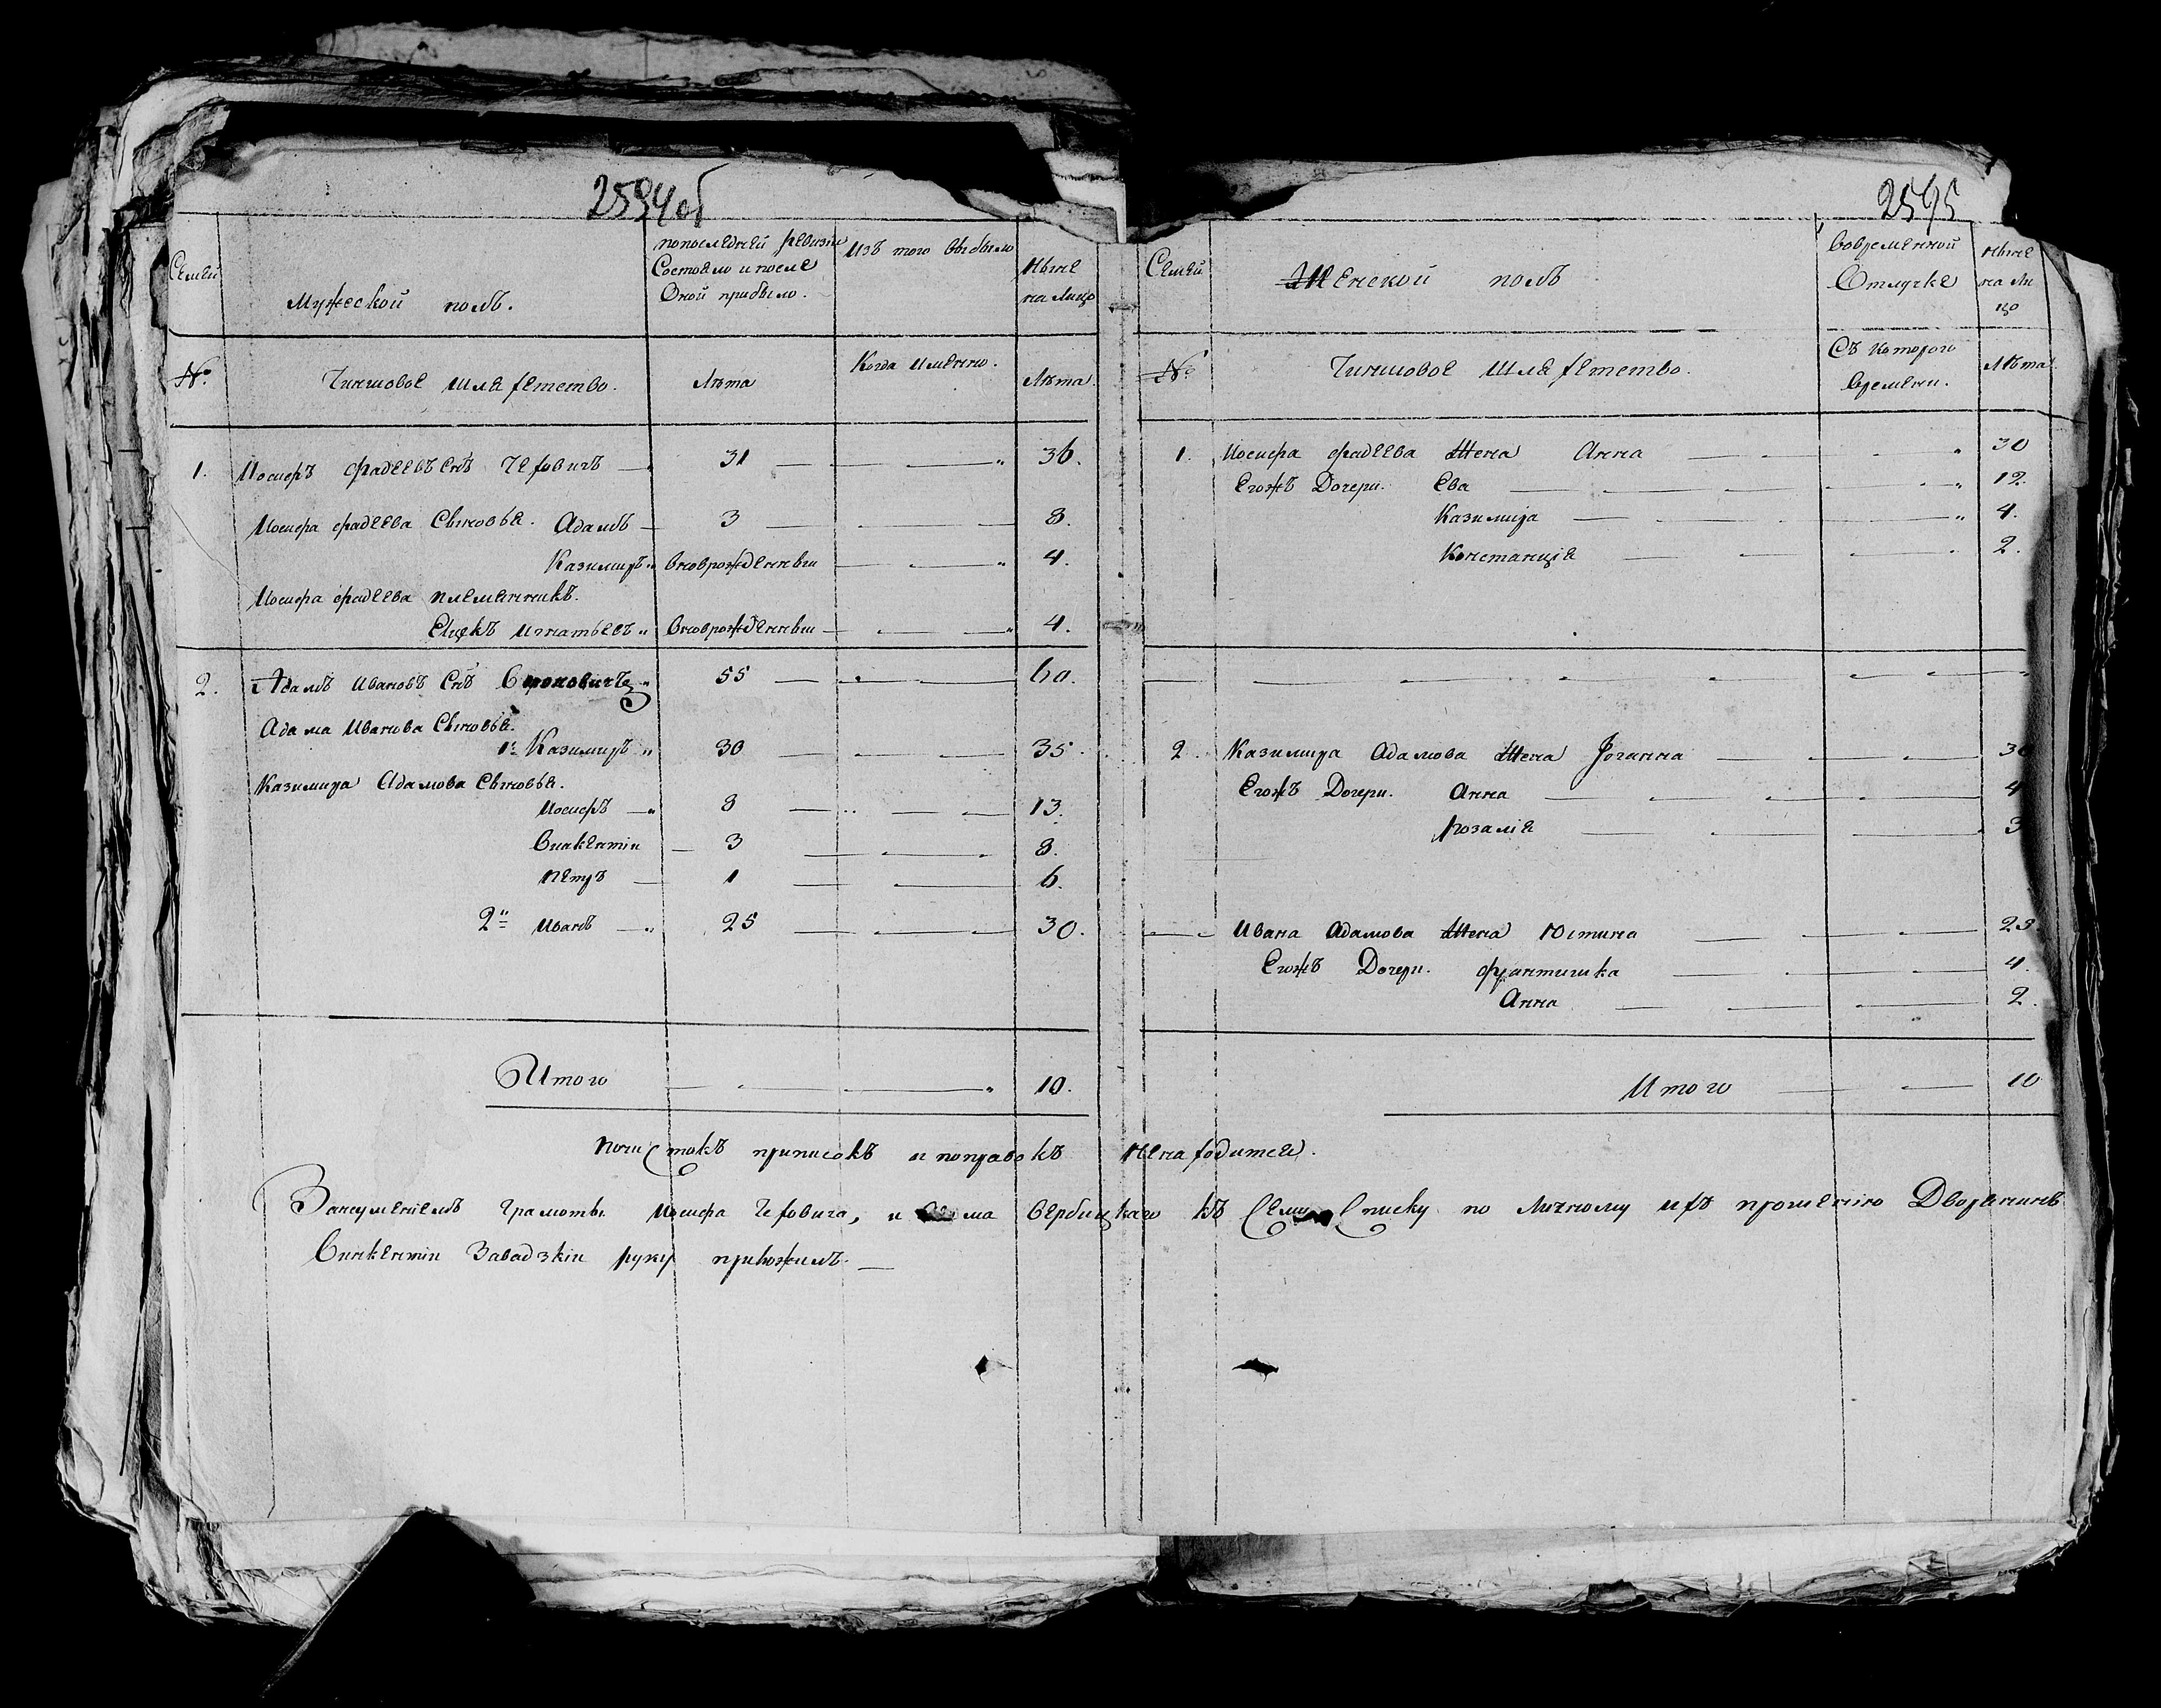 2594об
Семей
Мужеской полъ.
по последней ревизіи
Состояло и после
Оной прибыло.
Изъ того выбыло
Ныне
на Лицо
№
Чиншовое шляхетство.
Лѣта
Когда имянно.
Лѣта.
1. Иосифъ Фадеевъ Снъ Чеховичъ — 31 — 36.
Иосифа Фадеева Сыновья. Адамъ — 3 — 8.
Казимиръ вноврожденный — 4.
Иосифа Фадеева племянникъ.
Игнатьевъ вноврожденный — 4.
2. Адамъ Ивановъ Снъ 55 — 60.
Адама Иванова Сыновья.
1й Казимиръ 30 — 35.
Казимира Адамова Сыновья.
Иосифъ — 8 — 13.
Викентій — 3 — 8.
Петръ — 1 — 6.
2й Иванъ — 25 — 30.
Итого — 10.
2595
Семей
Женской полъ
Вовременной
Отлучке
Ныне
на Ли
цо
№
Чиншовое шляхетство.
Съ которого
времени.
Лѣта.
1. Иосифа Фадеева Жена Анна — 30
Егожъ Дочери. Ева — 12.
Казимира — 4.
Констанція — 2.
2. Казимира Адамова Жена Іоганна — 30
Егожъ Дочери. Анна — 4
Розалія — 3
Ивана Адамова Жена Юстина — 23
Егожъ Дочери. Францишка — 4.
Анна — 2.
Итого — 10
Почистокъ приписокъ и поправокъ ненаходится.
Занеуменіемъ грамоты Иосифа Чеховича, и Вербицкаго къ Списку по Личному ихъ прошенію Дворянинъ
Викентій Завадзкій руку приложилъ. —